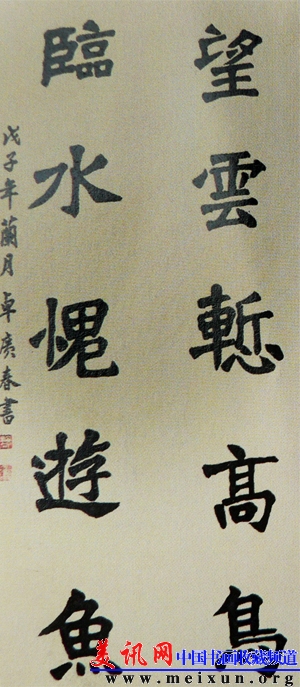 望雲慙高鳥
臨水愧遊魚
戊子年蘭月卓廣春書
美讯网 中国书画收藏频道
www.meixun.org